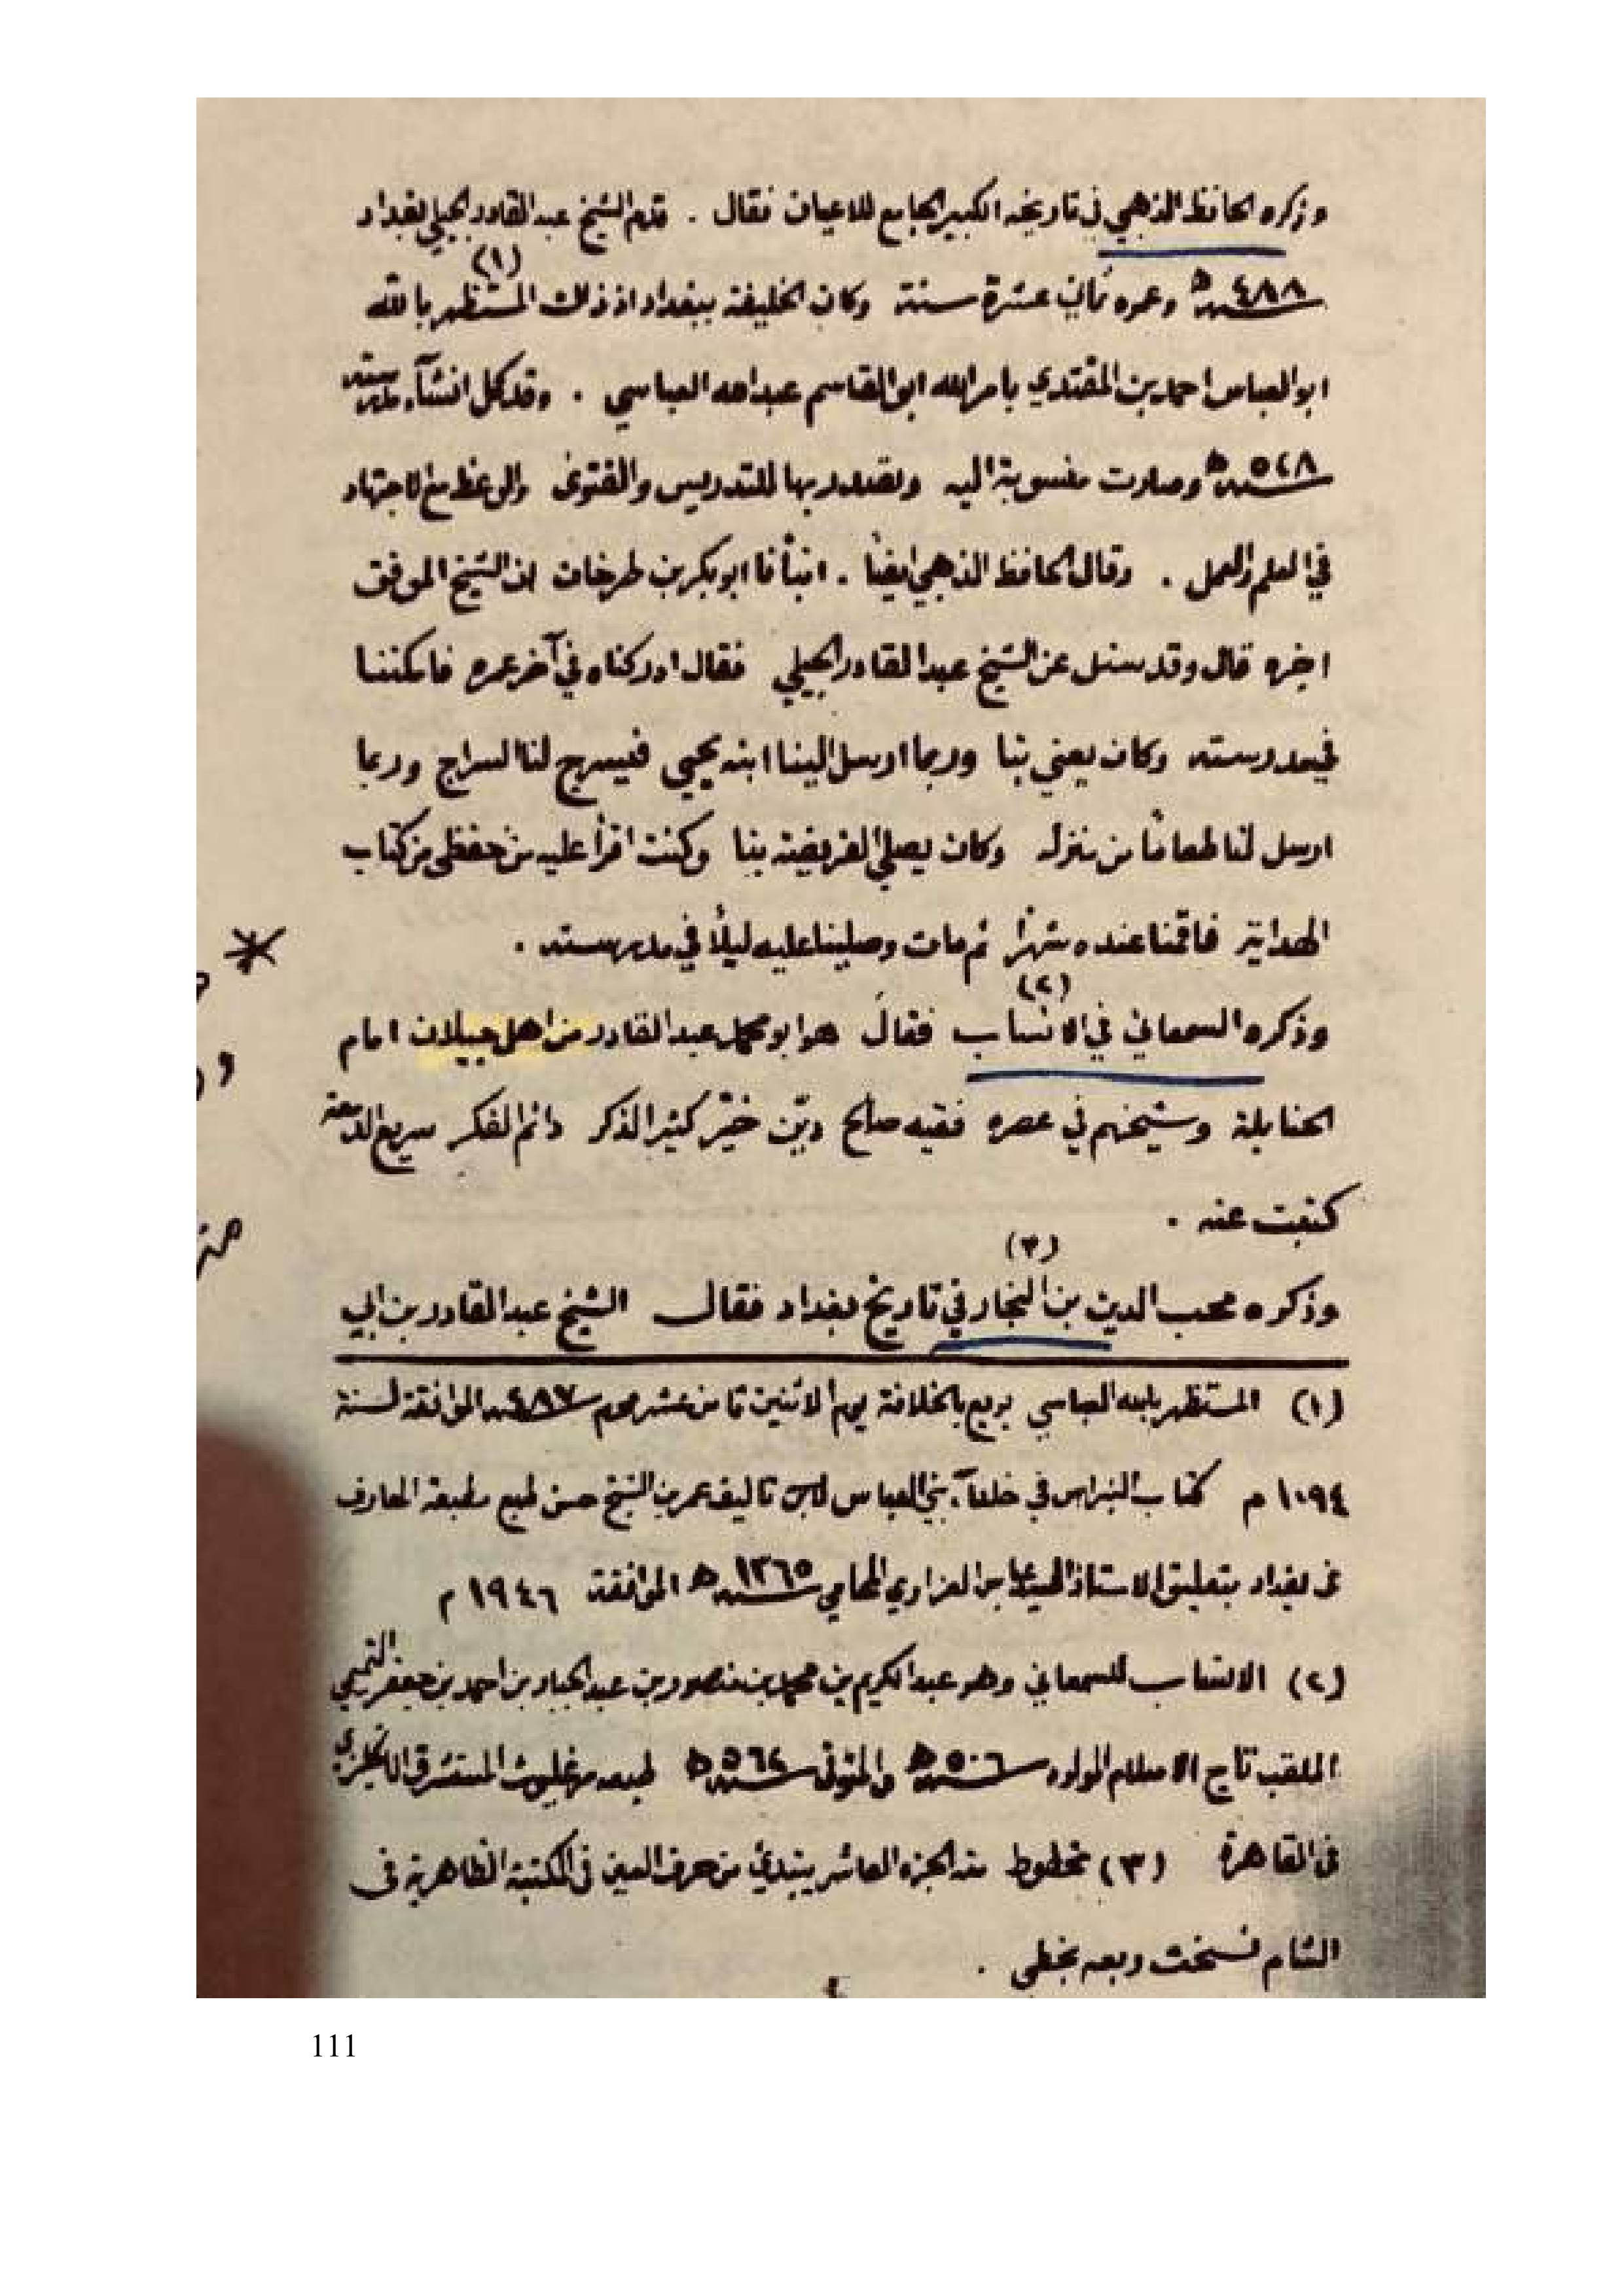 وذكره الحافظ الذهبي في تاريخه الكبير الجامع للاعيان فقال . قدم الشيخ عبد القادر الجيلي بغداد
سنة ٤٨٨ ه وعمره ثماني عشرة سنة وكان الخليفة ببغداد اذ ذلك المستظهر بالله (١)
ابو العباس احمد بن المقتدي بامر الله ابو القاسم عبد الله العباسي . وقد كمل انشآء مدرسته
سنة ٥٤٨ ه وصارت منسوبة اليه وتصدر بها للتدريس والفتوى والوعظ مع الاجتهاد
في العلم والعمل . وقال الحافظ الذهبي ايضاً . انبأنا ابو بكر بن طرخان ان الشيخ الموفق
اخبره قال وقد سئل عن الشيخ عبد القادر الجيلي فقال ادركناه في آخر عمره فاسكننا
في مدرسته وكان يعني بنا وربما ارسل الينا ابنه يحيى فيسرج لنا السراج وربما
ارسل لنا طعاماً من منزله وكان يصلي الفريضة بنا وكنت اقرأ عليه من حفظي من كتاب
الهداية فاقمنا عنده شهراً ثم مات وصلينا عليه ليلاً في مدرسته .
وذكره السمعاني في الانساب (٢) فقال هو ابو محمد عبد القادر من اهل جيلان امام
الحنابلة وشيخهم في عصره فقيه صالح ديّن خيّر كثير الذكر دائم الفكر سريع الدمعة
كتبت عنه .
وذكره محب الدين بن النجار (٣) في تاريخ بغداد فقال الشيخ عبد القادر بن ابي
(١) المستظهر بالله العباسي بويع بالخلافة يوم الاثنين ثامن عشر محرم سنة ٤٨٧ الموافقة لسنة
١٠٩٤ م كتاب النبراس في خلفآء بني العباس تاليف عمر بن الشيخ حسن طبع مطبعة المعارف
في بغداد بتعليق الاستاذ السيد عباس العزاوي المحامي سنة ١٣٦٥ ه الموافقة ١٩٤٦ م
(٢) الانساب للسمعاني وهو عبد الكريم بن محمد بن منصور بن عبد الجبار بن احمد بن جعفر التميمي
الملقب تاج الاسلام المولود سنة ٥٠٦ ه والمتوفى سنة ٥٦٢ ه طبعه مرغليوث المستشرق الانكليزي
في القاهرة (٣) مخطوط منه الجزء العاشر يبتدئ من حرف العين في المكتبة الظاهرية في
الشام نسخت ربعه بخطي .
111